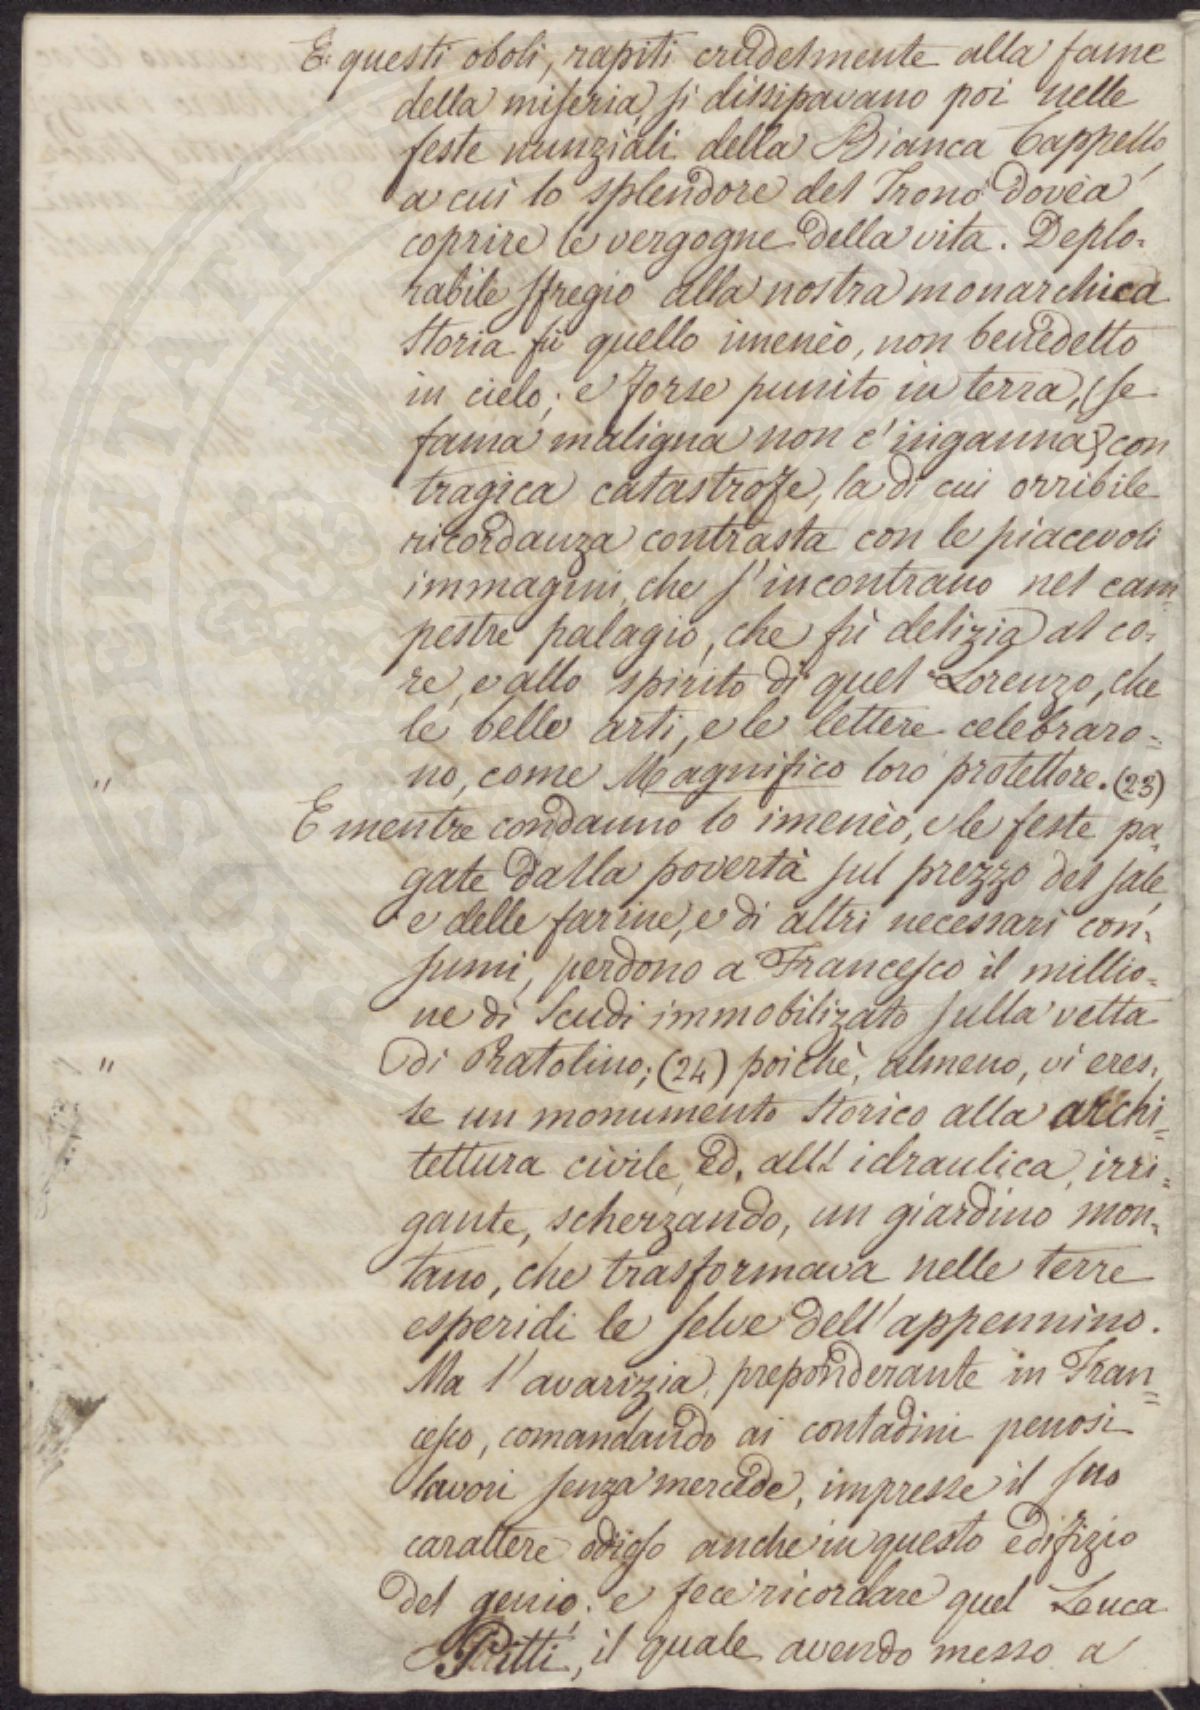 E questi oboli, rapiti crudelmente alla fame
della miseria, si dissipavano poi nelle
feste nunziali della Bianca Cappello,
a cui lo splendore del Trono dovèa
coprire le vergogne della vita. Deplo-
rabile sfregio alla nostra monarchica
storia fù quello imenèo, non benedetto
in cielo; e forse punito in terra, (se
fama maligna non c'inganna) con
tragica catastrofe, la di cui orribile
ricordanza contrasta con le piacevoli
immagini, che s'incontrano nel cam-
pestre palagio, che fù delizia al co-
re, e allo spirito di quel Lorenzo, che
le belle arti, e le lettere celebraro=
no, come Magnifico loro protettore. (23)
"
E mentre condanno lo imenèo, e le feste pa-
gate dalla povertà sul prezzo del sale,
e delle farine, e di altri necessari con-
sumi, perdono a Francesco il millio-
ne di Scudi immobilizato sulla vetta
di Pratolino; (24) poichè, almeno, vi eres-
"
se un monumento storico alla archi=
tettura civile, ed, all' idraulica, irri=
gante, scherzando, un giardino mon-
tano, che trasformava nelle terre
esperidi le selve dell'appennino.
Ma l'avarizia, preponderante in Fran=
cesco, comandando ai contadini penosi
lavori senza mercede, impresse il suo
carattere odioso anche in questo edifizio
del genio; e fece ricordare quel Luca
Pitti, il quale avendo messo a
PROSPERITATI